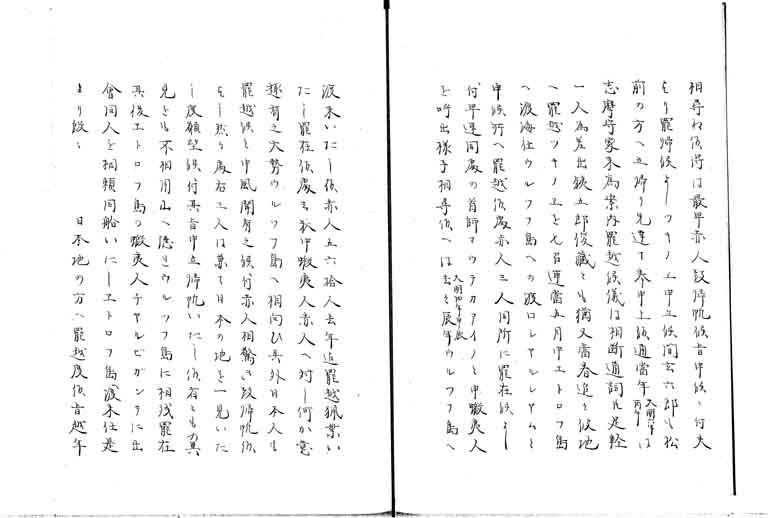 相尋ね候得は最早赤人段帰帆候旨申候に付夫
より罷帰候よしツキノエ申立候間玄六郎も松
前の方へ立帰り先達て奉申上候通当年天明六年丙午は
志摩守家来為案内罷越候儀は相断通詞〆是軽
一人為差出鉄五郎俊蔵とも猶又当春追々彼地
へ罷越ツキノエを召連当五月中エトロフ島
へ渡海仕ウルツフ島への渡口シヤルシヤムと
申候所へ罷越候処赤人三人同所に罷在候よし
付早速同処の首師マウテカアイノと申蝦夷人
を呼出様子相尋候へは去々辰年天明四年甲辰ウルツフ島へ
渡来いたし候赤人五六拾人去年迄罷越猟業い
たし罷在候処を於中蝦夷人赤人へ対し何か意
趣有之大勢ウルツフ島へ相向ひ其外日本人も
罷越候と申風聞有之候付赤人相驚き段帰帆仕
をし然る処右三人は兼て日本の地を一見いた
し度願望候付其旨申立帰帆いたし候者とも の異
見とも不相用山へ隠れウルツフ島に相残罷在
其後エトロフ島の蝦夷人チヤルビガンケに出
会同人を相頼同船いたしエトロフ島へ渡来仕是
より段々 日本地の方へ罷越度候旨越年